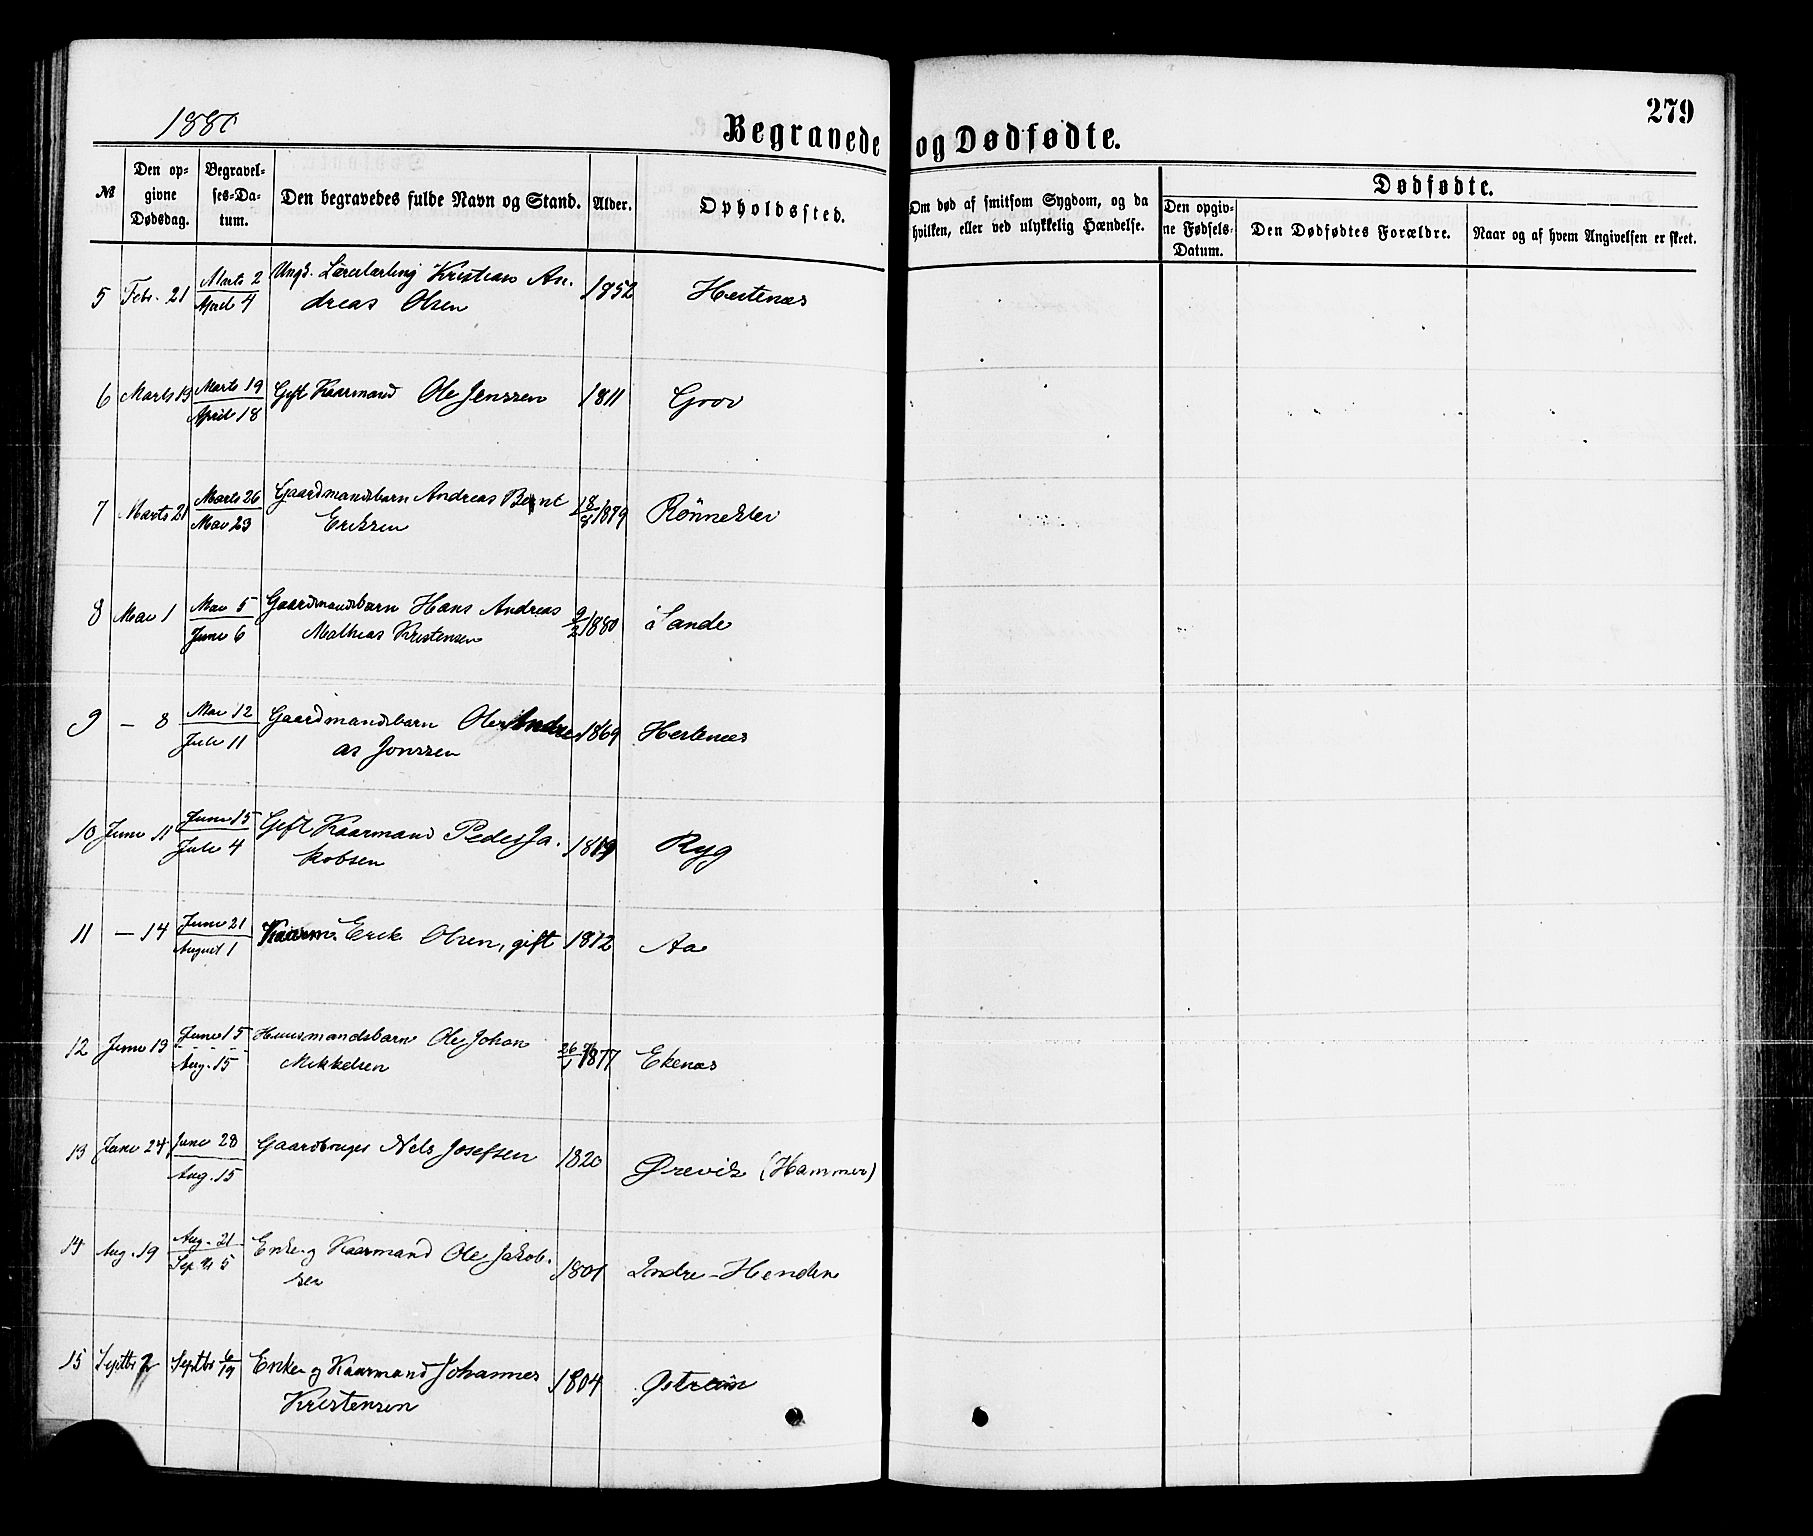 1880
Begravede og Dødfødte.
279
№
Den opgivne Dødsdag.
Begravelses-Datum.
Den begravedes fulde Navn og Stand.
Alder.
Opholdssted.
Om død af smitsom Sygdom, og da hvilken, eller ved ulykkelig Hændelse.
Dødfødte.
Den opgivne Fødsels-Datum.
Den Dødfødtes Forældre.
Naar og af hvem Angivelsen er skeet.
5 Febr. 21 Marts 2 / April 4 Ungk. Lærerlærling Kristian An-
dreas Olsen 1852 Hestenæs
6 Marts 13 Marts 19 / April 18 Gift Kaarmand Ole Jenssen 1811 Grov
7 Marts 21 Marts 26 / Mai 23 Gaardmandsbarn Andreas Bernt
Eriksen 18/8 1879 Rønneklev
8 Mai 1 Mai 5 / Juni 6 Gaardmandsbarn Hans Andreas
Mathias Kristensen 9/2 1880 Sande
9 — 8 Mai 12 / Juli 11 Gaardmandsbarn Ole Andre
as Jonssen 1869 Hestenæs
10 Juni 11 Juni 15 / Juli 4 Gift Kaarmand Peder Ja-
kobsen 1819 Ryg
11 — 14 Juni 21 / August 1 Kaarm. Erik Olsen, gift 1812 Aa
12 Juni 13 Juni 15 / Aug. 15 Huusmandsbarn Ole Johan
Mikkelsen 1877 Ekenæs
13 Juni 24 Juni 28 / Aug. 15 Gaardbruger Nils Josefsen 1820 Ørevik (Hammer)
14 Aug. 19 Aug. 21 / Septb 5 Enke- og Kaarmand Ole Jakob-
sen 1801 Indre-Henden
15 Septbr 2 Septbr 6/19 Enke- og Kaarmand Johannes
Kristensen 1804